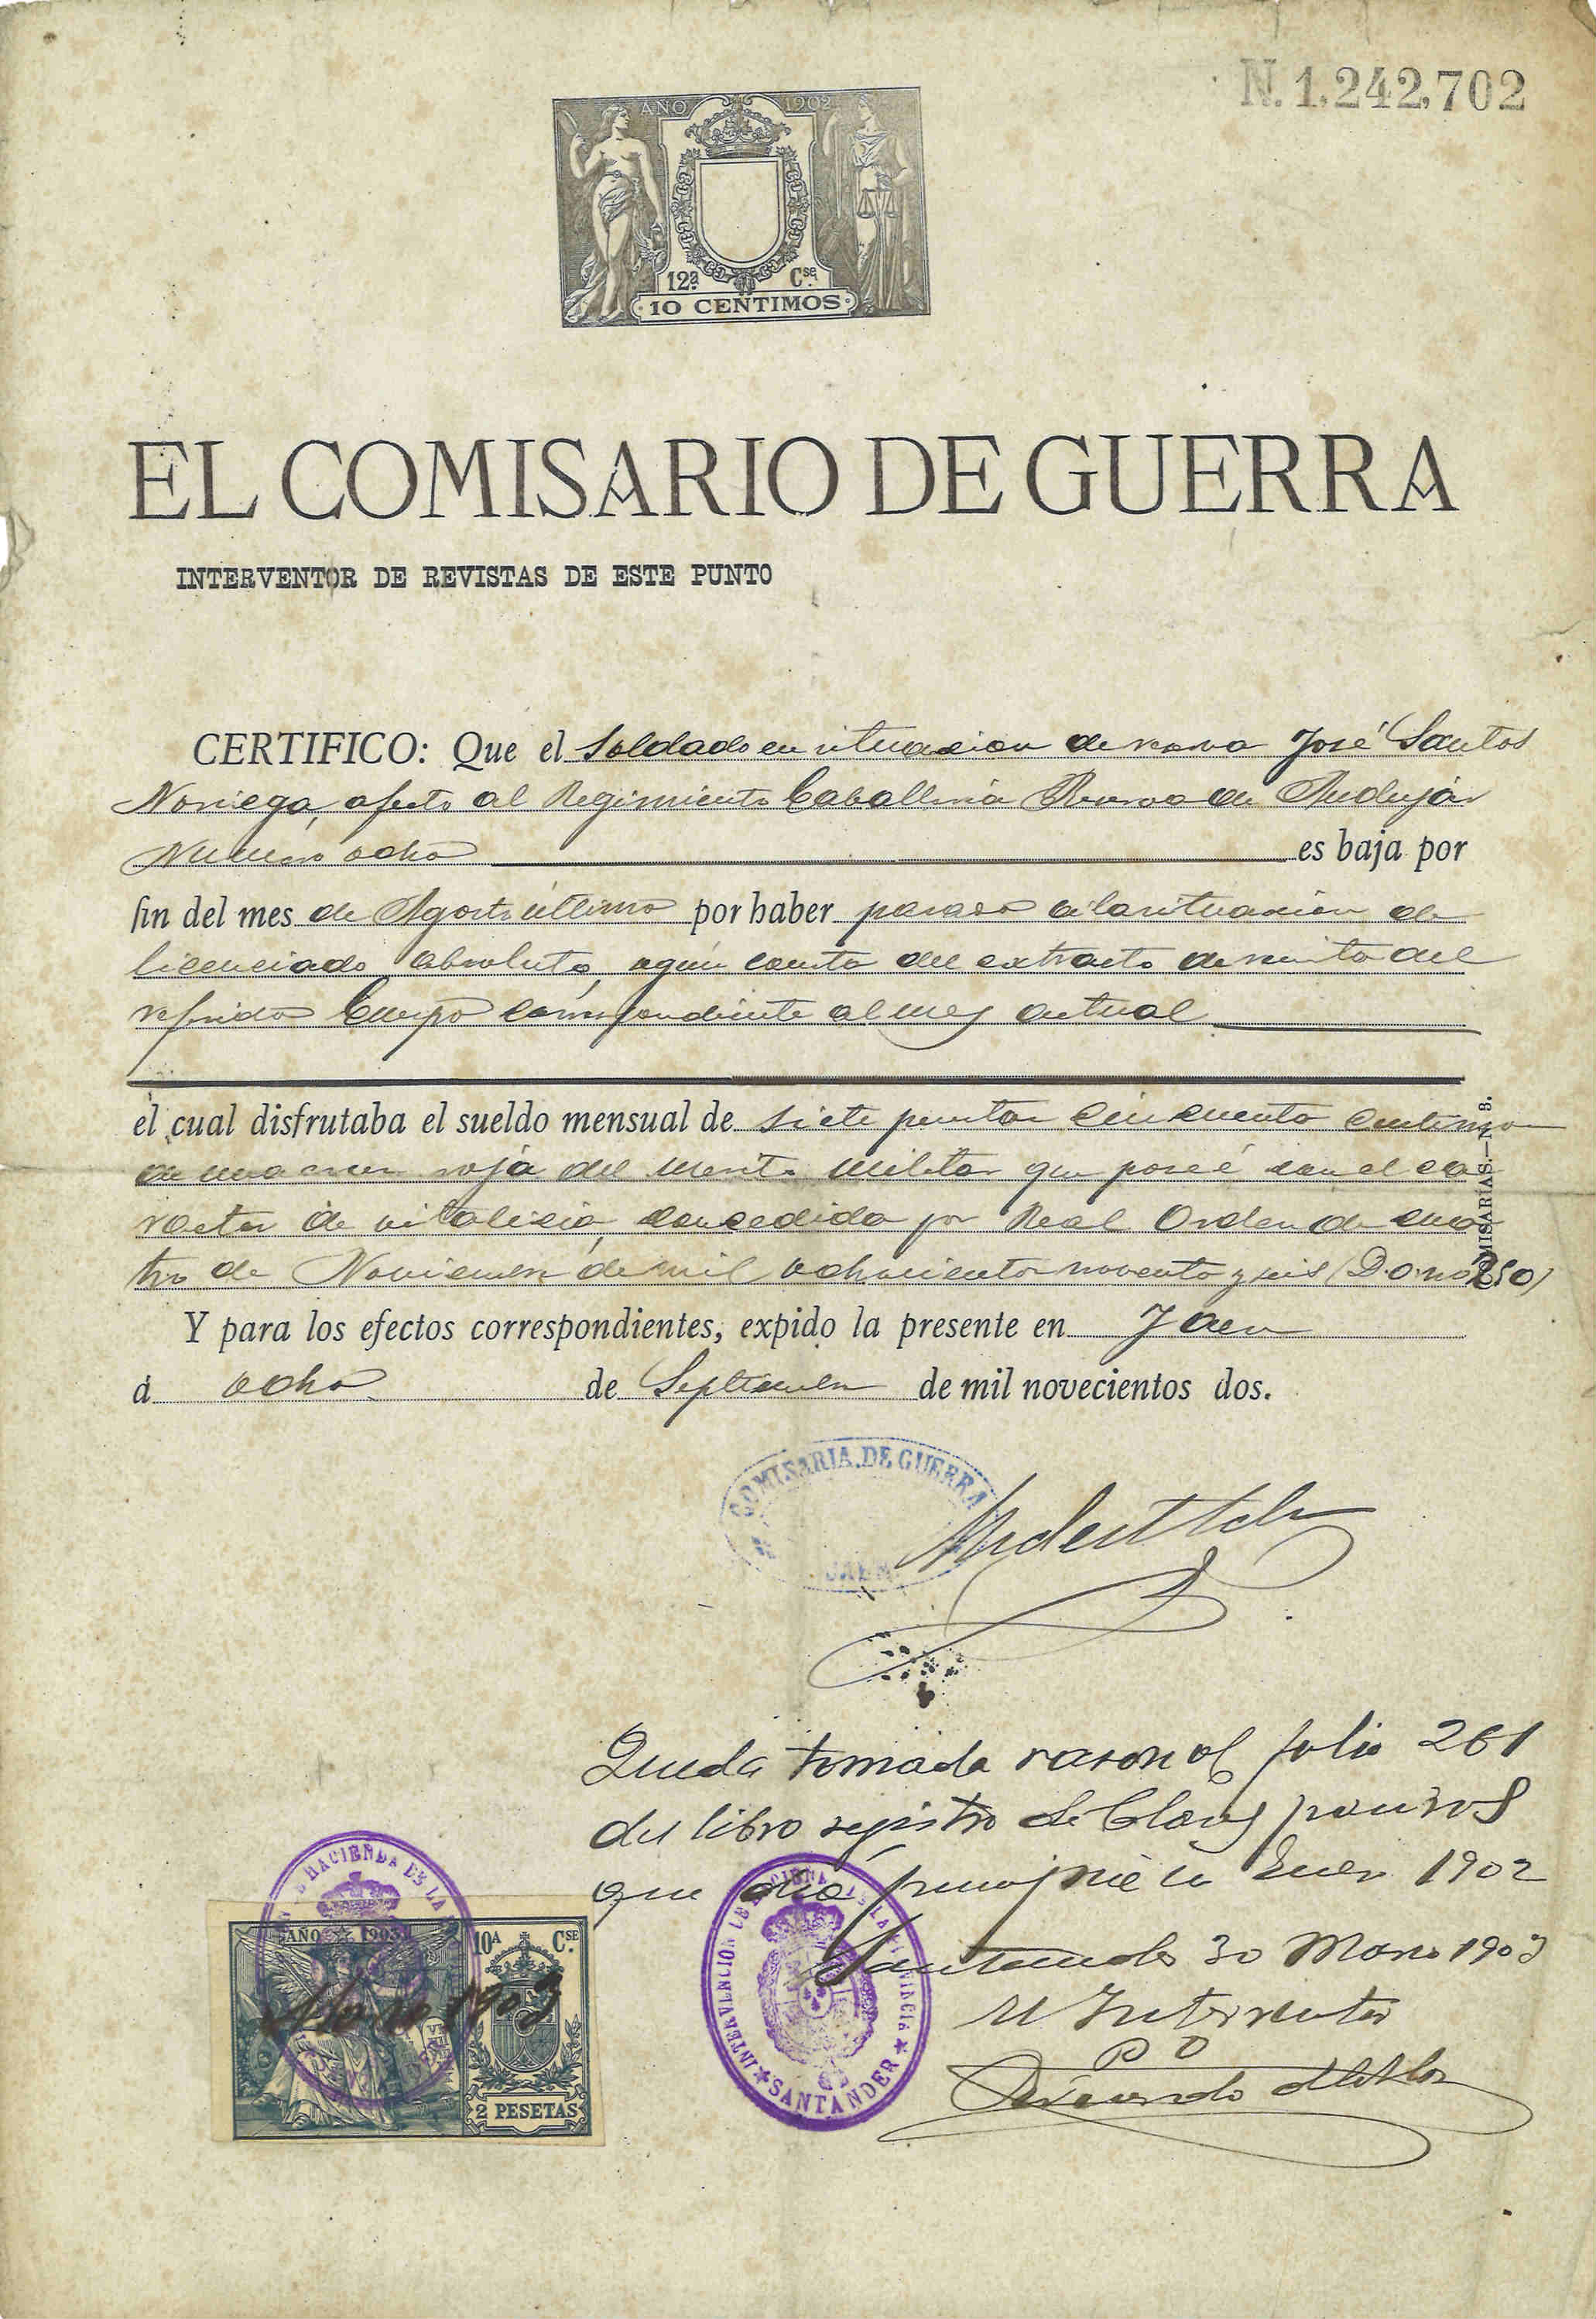 N. 1.242,702
AÑO 1902
12ª Cse.
10 CENTIMOS
EL COMISARIO DE GUERRA
INTERVENTOR DE REVISTAS DE ESTE PUNTO
CERTIFICO: Que el Soldado en situacion de reserva José Santos
Noriega, afecto al Regimiento Caballeria Reserva de Andujár
Numero ocho es baja por
fin del mes de Agosto ultimo por haber pasado a la situacion de
licenciado absoluto, segun consta del extracto de revista del
referido Cuerpo correspondiente al mes actual
el cual disfrutaba el sueldo mensual de siete pesetas cincuenta centimos
de una cruz roja del merito militar que poseé con el ca-
racter de vitalicia, concedida por Real Orden de cua-
tro de Noviembre de mil ochocientos noventa y seis (D.O. nº 250)
COMISARIAS.—N. 3.
Y para los efectos correspondientes, expido la presente en Jaen
á ocho de Septiembre de mil novecientos dos.
COMISARIA DE GUERRA
JAEN
Queda tomada razon al folio 261
del libro registro de Clases pasivas
que dió principio en Enero 1902
Santander 30 Marzo 1903
El Interventor
P O
Ricardo
INTERVENCION DE HACIENDA DE LA PROVINCIA
SANTANDER
HACIENDA DE LA
AÑO 1903
10A Cse.
Marzo 1903
2 PESETAS